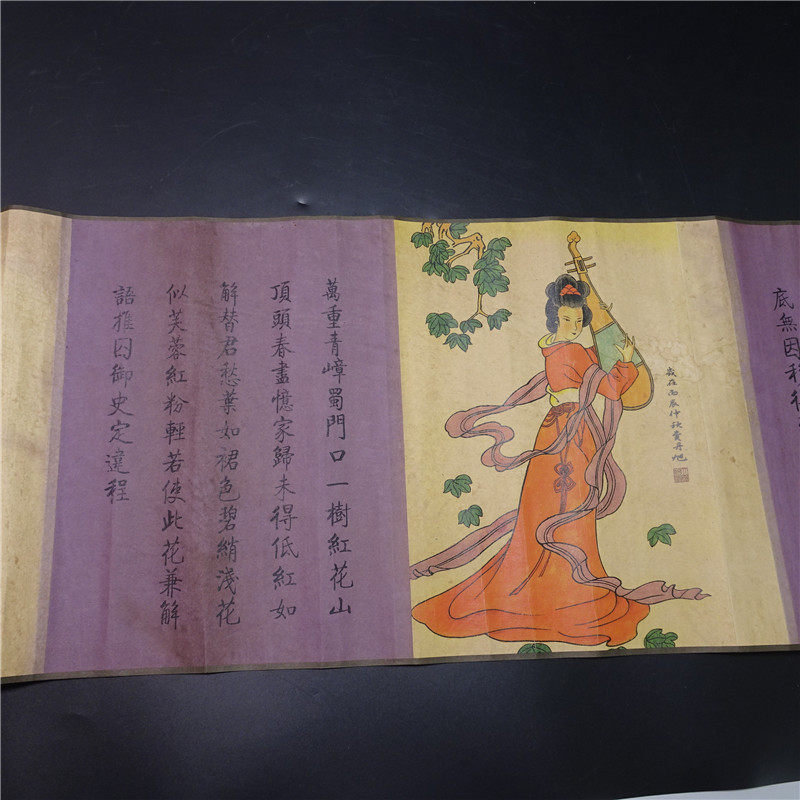 底無因
歲在丙辰仲秋費丹旭
萬重青嶂蜀門口一樹紅花山
頂頭春盡憶家歸未得低紅如
解替君愁葉如裙色碧綃淺花
似芙蓉紅粉輕若使此花兼解
語推囚御史定違程